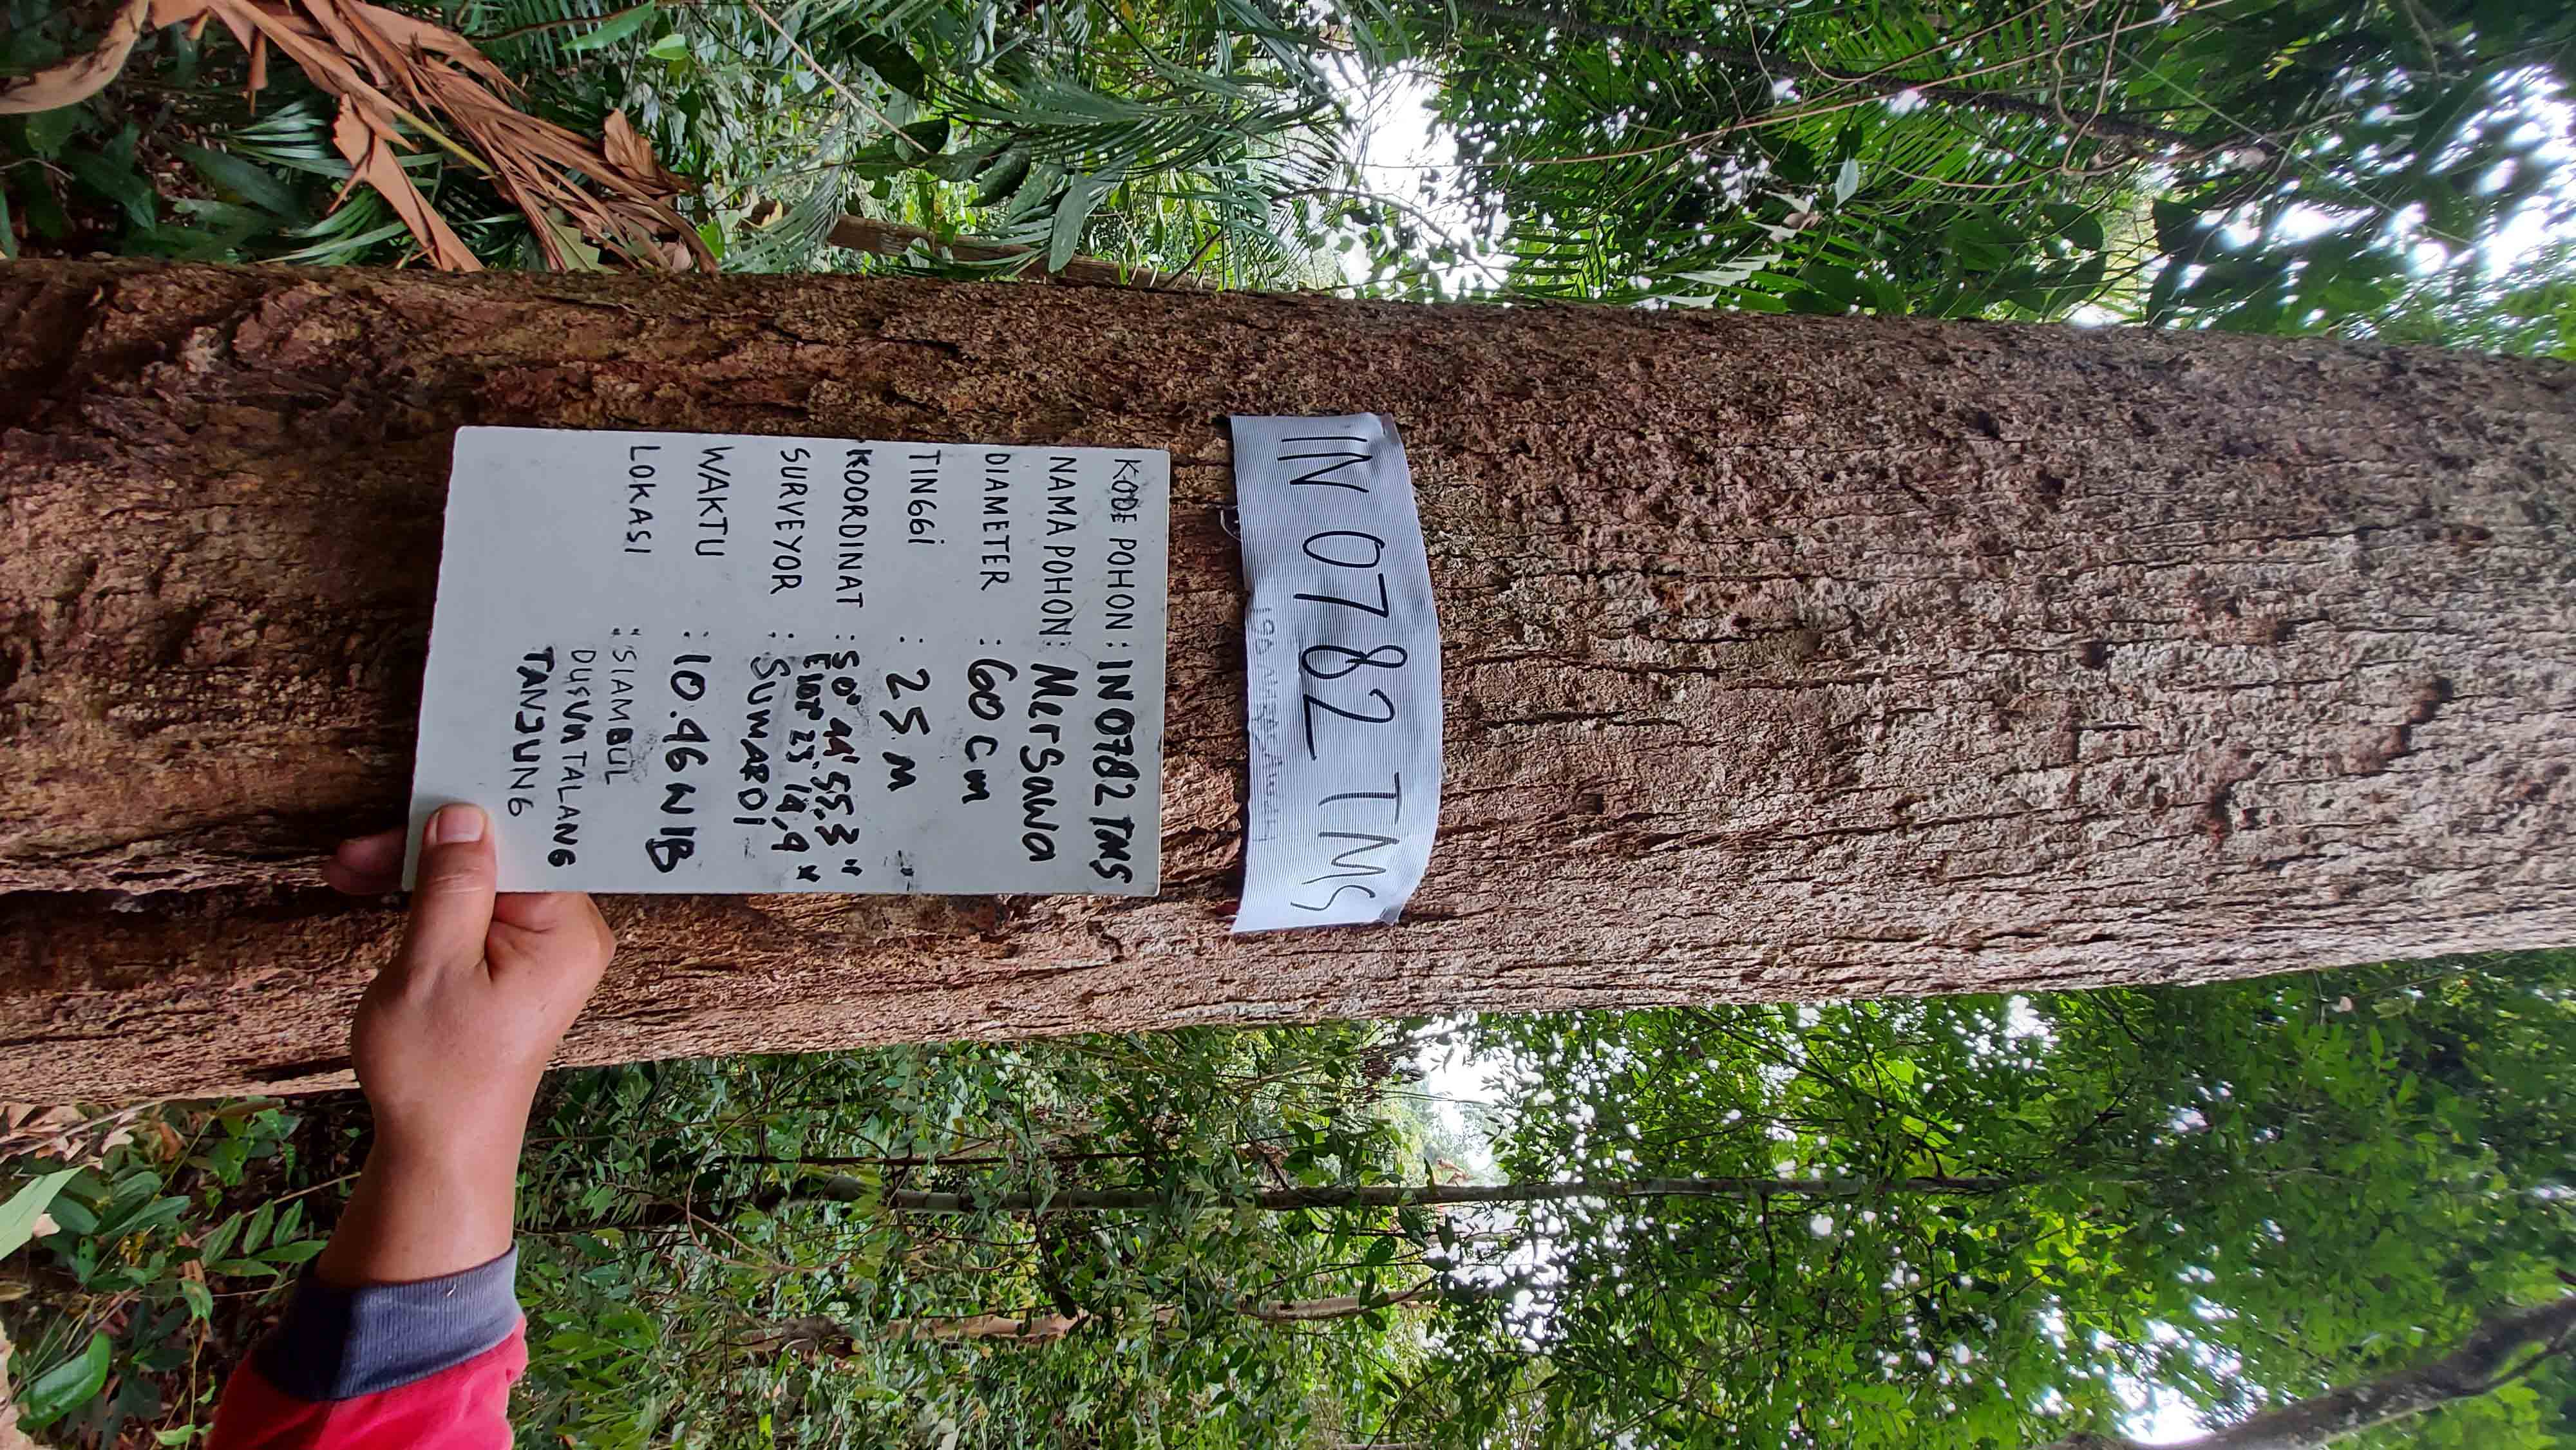 IN 0782 TMS
KODE POHON : IN 0782 TMS
NAMA POHON : Mersawa
DIAMETER : 60 cm
TINGGi : 25 M
KOORDINAT : S 0° 44' 55.3"
E 102° 23' 14,9"
SURVEYOR : SUMARDI
WAKTU : 10.46 WIB
LOKASI : SIAMBUL
DUSUN TALANG
TANJUNG